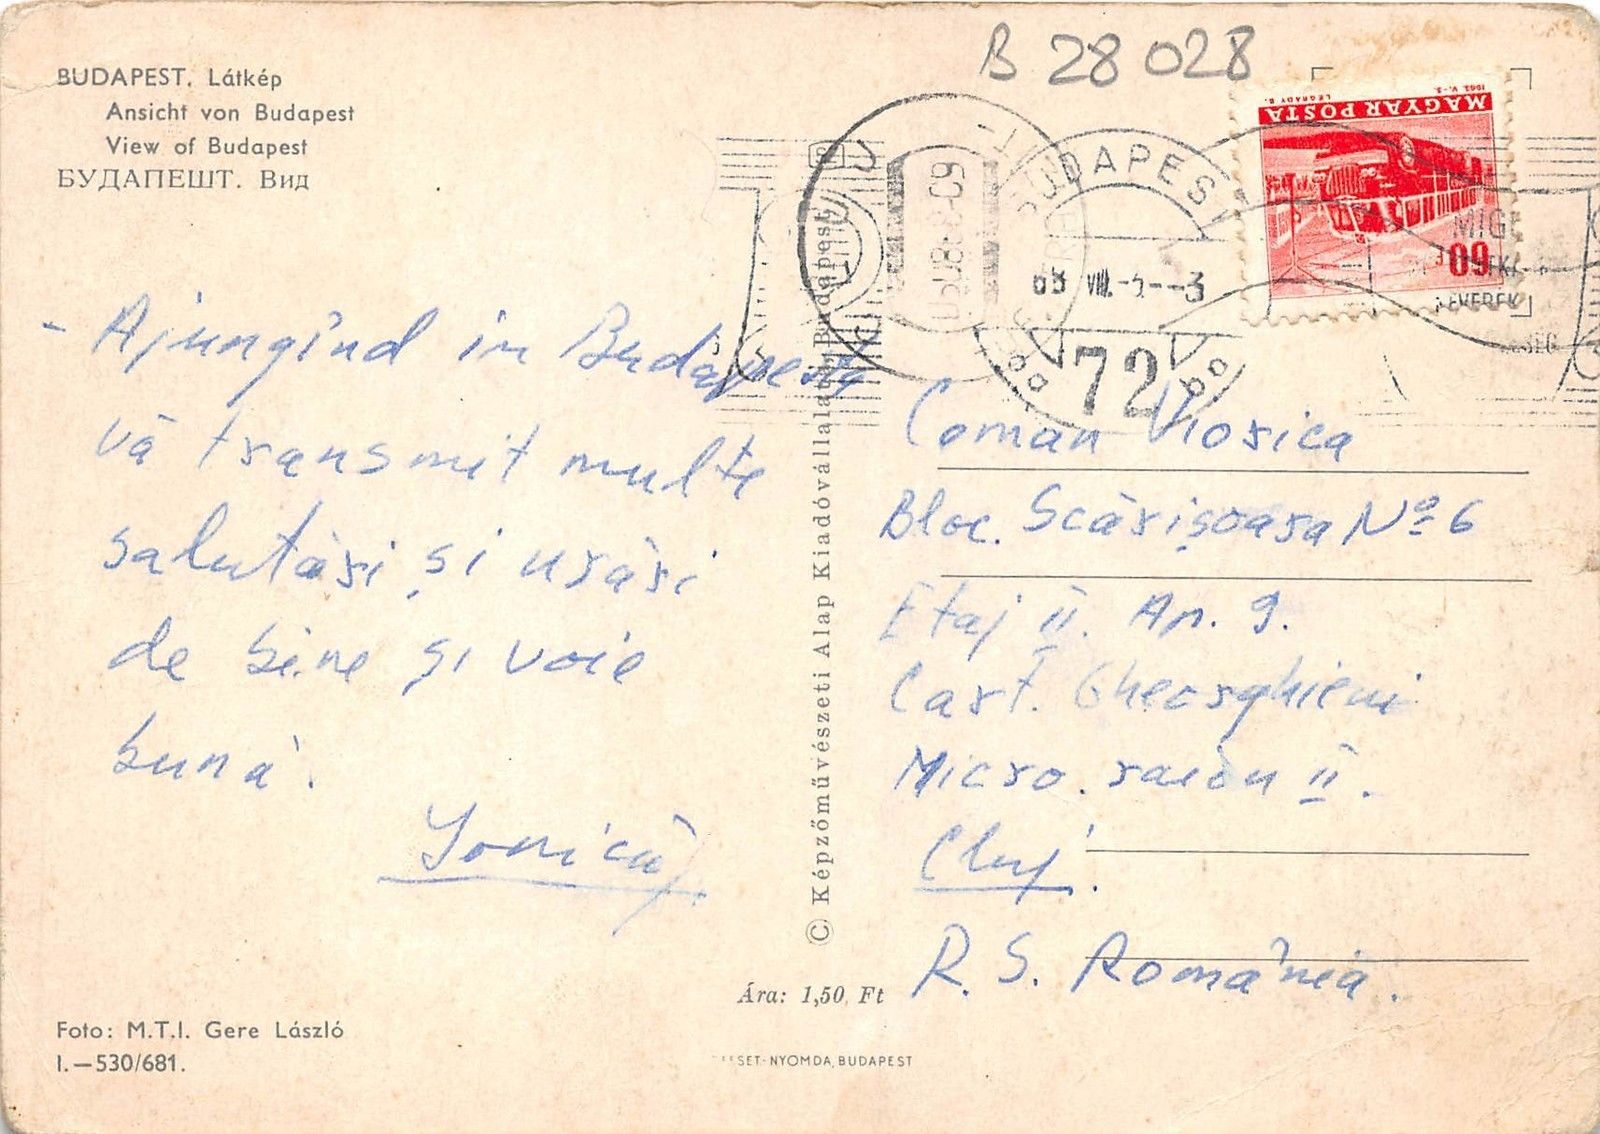 B 28 028
BUDAPEST. Látkép
Ansicht von Budapest
View of Budapest
БУДАПЕШТ. Вид
MAGYAR POSTA
LÉGRÁDY S.
1963. V.-S.
60
BUDAPEST
72
- Ajungînd in Budapesta
vă transmit multe
salutări și urări
de bine și voie
bună.
Ionică
Coman Viorica
Bloc. Scărișoara Nº 6
Etaj II. Ap. 9.
Cart. Gheorghieni
Micro. raion II.
Cluj.
R. S. România.
© Képzőművészeti Alap Kiadóvállalata, Budapest
Ára: 1,50 Ft
Foto: M.T.I. Gere László
I.—530/681.
SET-NYOMDA, BUDAPEST